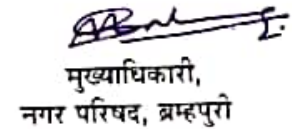 मुख्याधिकारी,
नगर परिषद, ब्रम्हपुरी